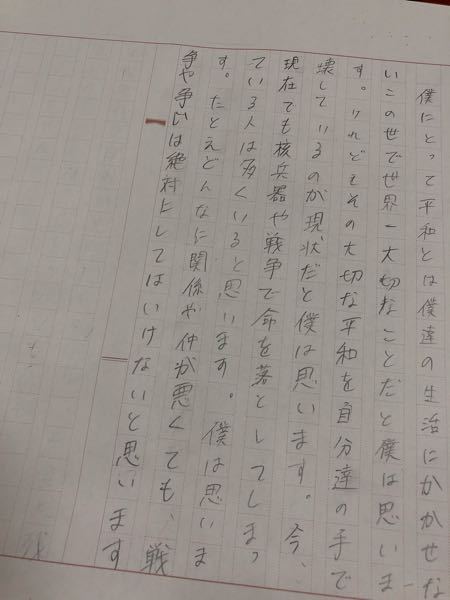 僕にとって平和とは僕達の生活にかかせな
いこのせでせ界一大切なことだと僕は思いま
す。けれどもその大切な平和を自分達の手で
壊しているのが現状だと僕は思います。今、
現在ても核兵器や戦争で命を落としてしまっ
ている人は多くいると思います。僕は思いま
す。たとえどんなに関係や仲が悪くても、戦
争や争いは絶対にしてはいけないと思います